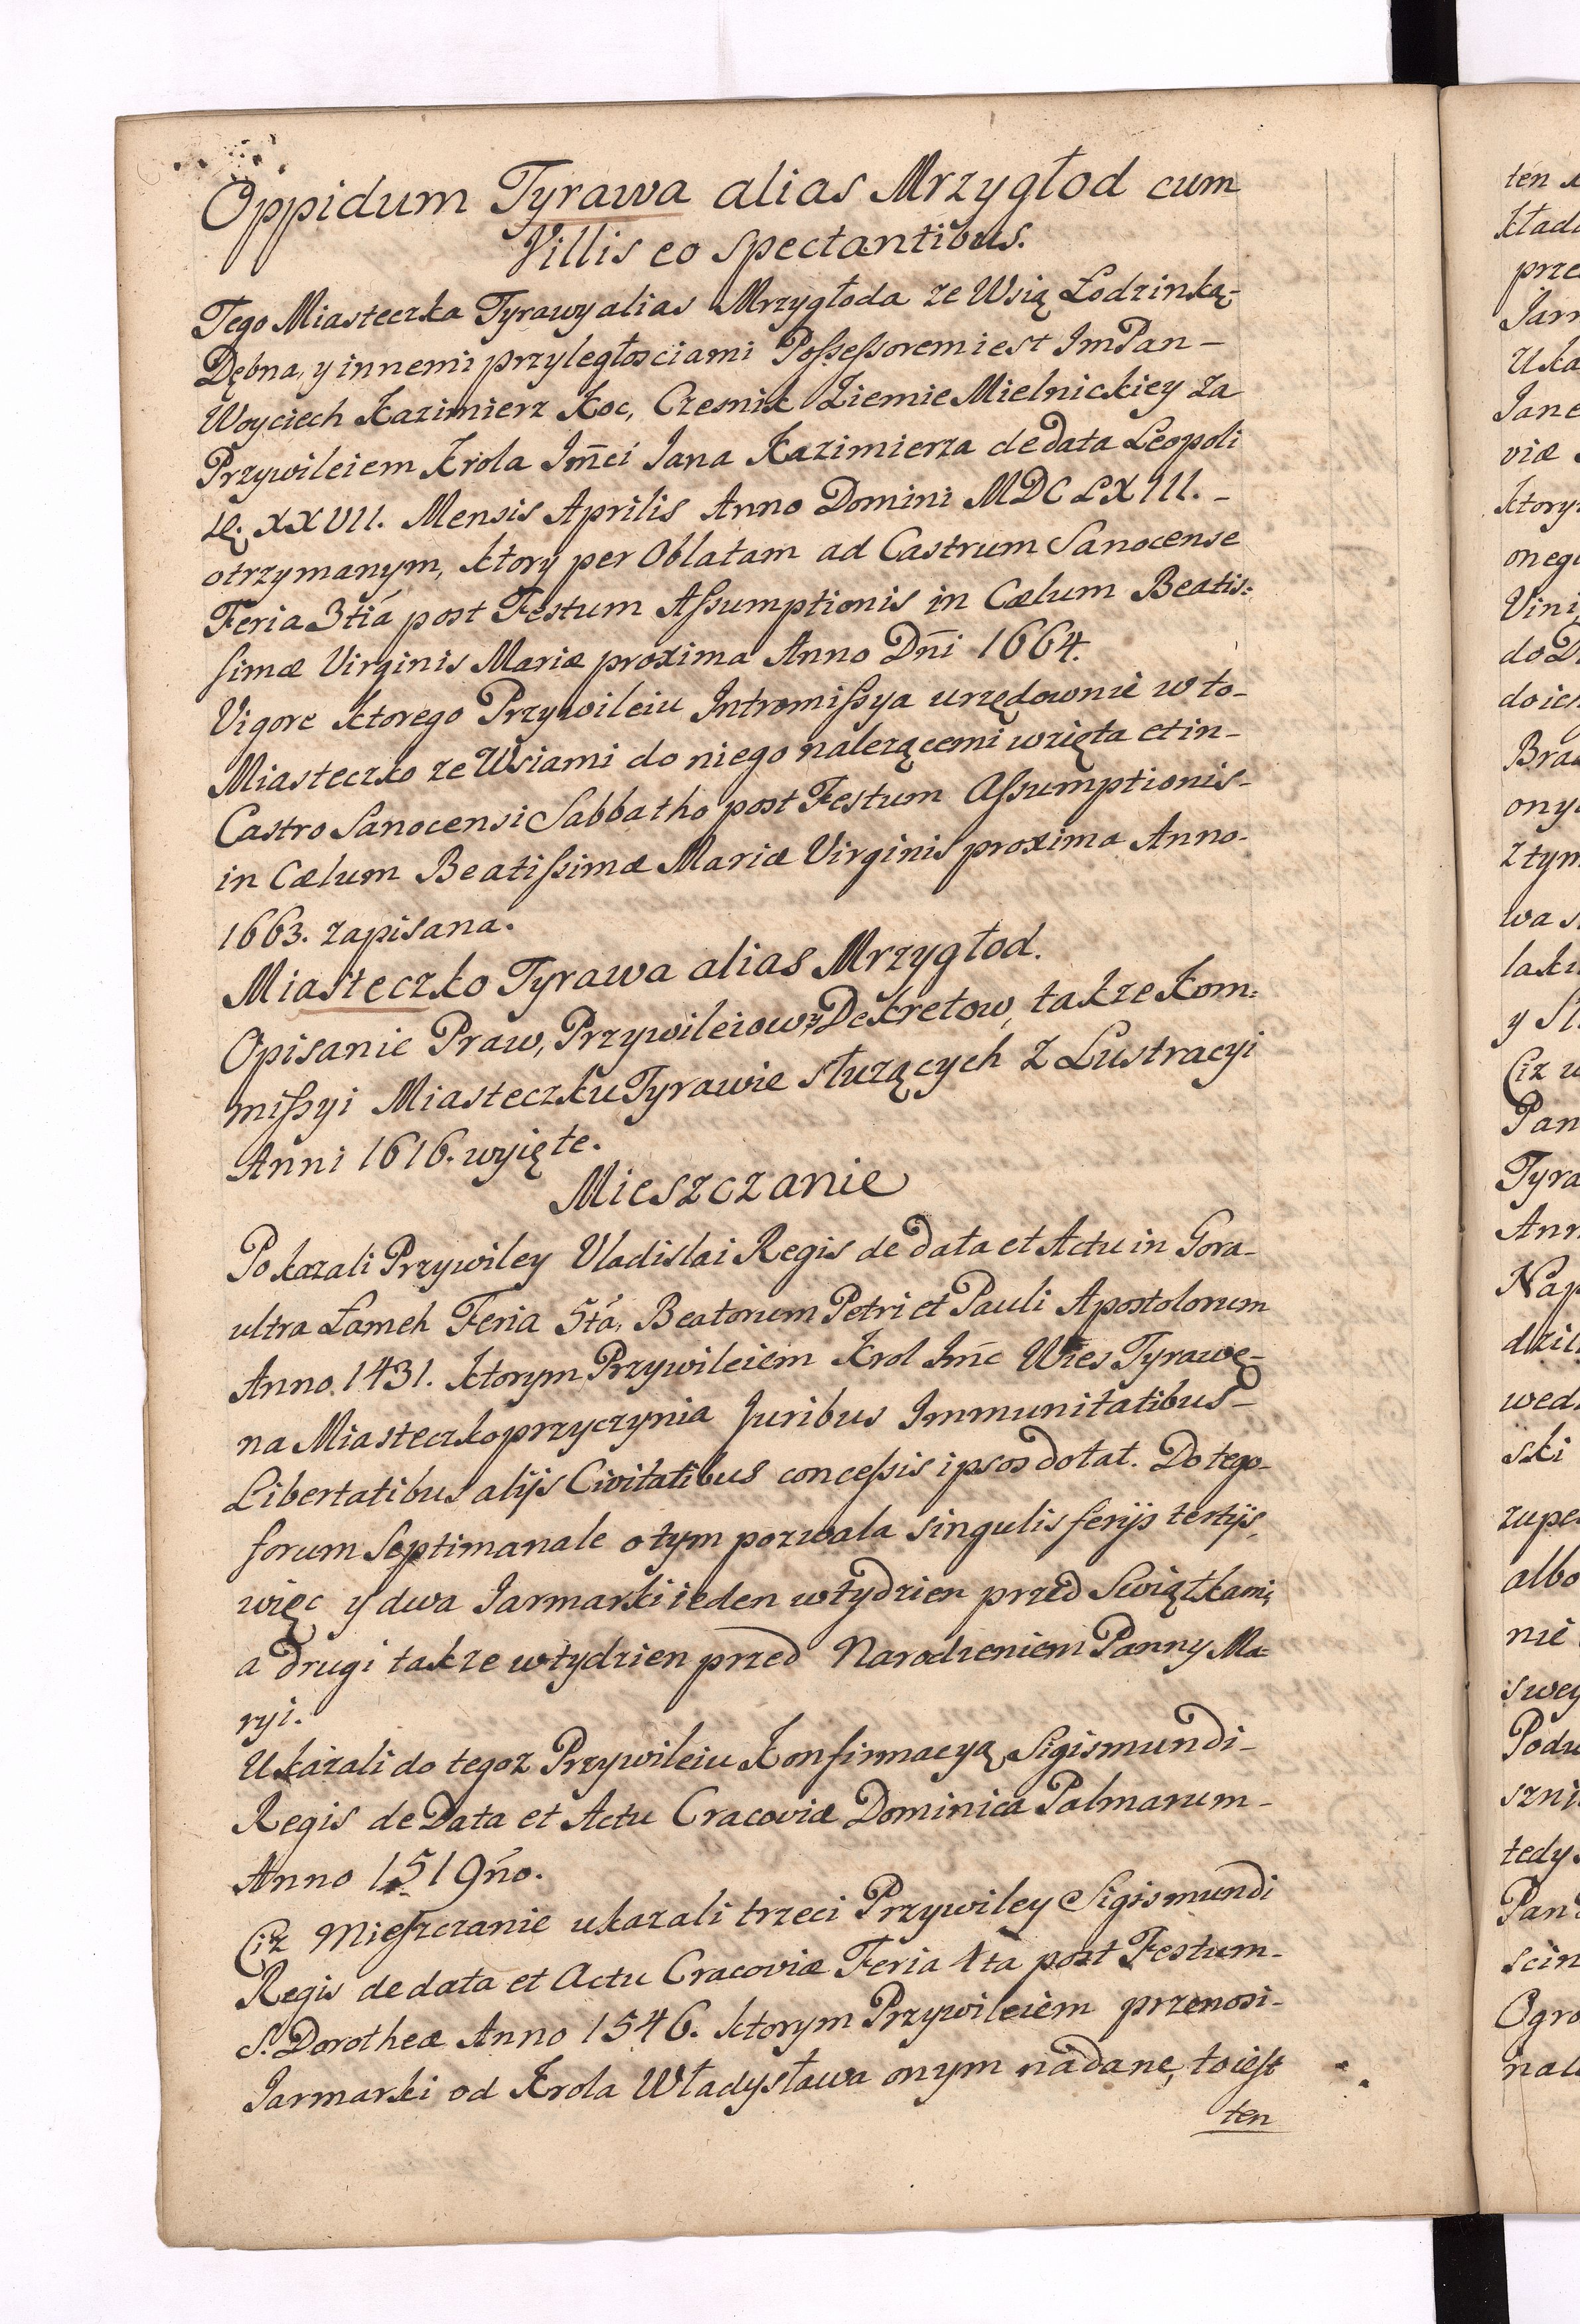 Oppidum Tyrawa alias Mrzygłod cum
Villis eo spectantibus.
Tego Miasteczka Tyrawy alias Mrzygłoda ze Wsią Łodzinką-
Dębna, y innemi przyległosciami Poſseſsorem iest Im Pan-
Woyciech Kazimierz Koc, Czesnik Ziemie Mielnickiey za
Przywileiem Krola Jm̃ci Jana Kazimierza de data Leopoli
XXVII. Mensis Aprilis Anno Domini MDCLXIII.-
otrzymanym, ktory per Oblatam ad Castrum Sanocense
Feria 3tiá post Festum Aſsumptionis in Cælum Beatis:
simæ Virginis Mariæ proxima Anno Dñi 1664.
Vigore ktorego Przywileiu Intromiſsya urzędownie w to-
Miasteczko ze Wsiami do niego nalezącemi wzięta et in-
Castro Sanocensi Sabbatho post Festum Aſsumptionis-
in Cælum Beatiſsimæ Mariæ Virginis proxima Anno-
1663. zapisana.
Miasteczko Tyrawa alias Mrzygłod.
Opisanie Praw, Przywileiow, Dekretow, takze Kom:
miſsyi Miasteczku Tyrawie słuzących z Lustracyi
Anni 1616. wyięte.
Mieszczanie
Pokazali Przywiley Vladislai Regis de data et Actu in Gora-
ultra Łameh Feria 5tá, Beatorum Petri et Pauli Apostolorum
Anno 1431. ktorym Przywileiem Krol Jm̃c Wies Tyrawę-
na Miasteczko przyczynia Juribus Immunitatibus-
Libertatibus alijs Civitatibus conceſsis ipsos dotat. Do tego-
forum Septimanale o tym pozwala singulis ferijs tertijs,
więc y dwa Jarmarki ieden w tydzien przed Swiątkami,
a drugi takze w tydzien przed Narodzeniem Panny Ma=
ryi.
Ukazali do tegoz Przywileiu Konfirmacyą Sigismundi-
Regis de Data et Actu Cracoviæ Dominica Palmarum-
Anno 1519ńo.
Ciz Mieſzczanie ukazali trzeci Przywiley Sigismundi
Regis de data et Actu Cracoviæ Feria 4ta post Festum-
S. Dorotheæ Anno 1546. ktorym Przywileiem przenosi-
Jarmarki od Krola Władysława onym nadane, to iest
ten